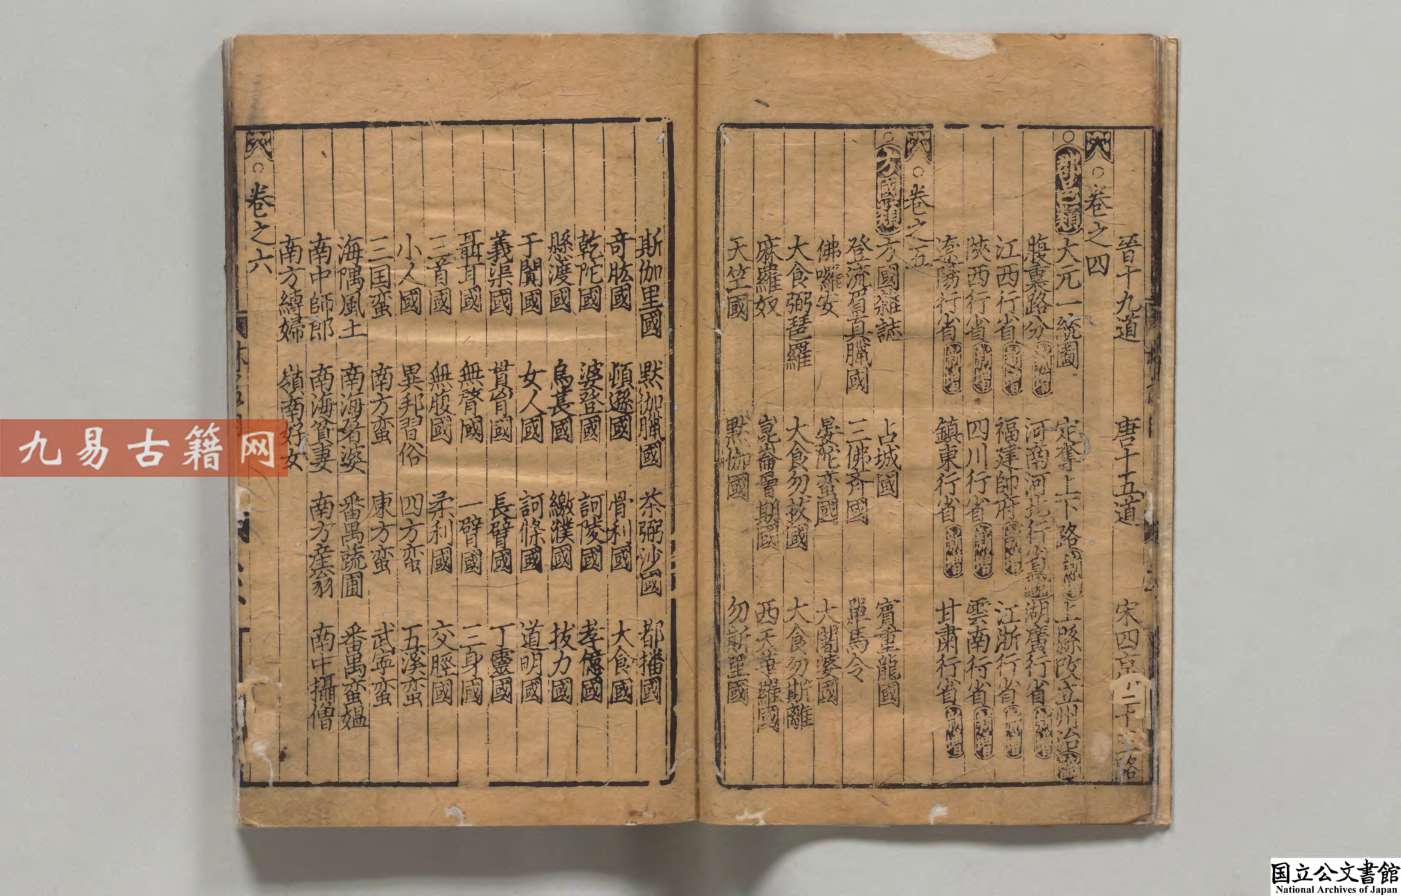 晉十九道 唐十五道 宋四京 二十 路
卷之四
郡邑類 大元一統圖 定奪上下路 上縣改立州治
腹裏路分 河南河北行省 湖廣行省
江西行省 福建帥府 江浙行省
陝西行省 四川行省 雲南行省
遼陽行省 鎮東行省 甘肅行省
卷之五
方國類 方國雜誌 占城國 賓童龍國
登流眉真臘國 三佛齊國 單馬令
佛囉安 晏陀蠻國 大闍婆國
大食弼琶羅 大食勿拔國 大食勿斯離
麻羅奴 崑崙層期國 西天 羅國
天竺國 默伽國 勿斯里國
斯伽里國 默伽臘國 茶弼沙國 都播國
奇肱國 頓遜國 骨利國 大食國
乾陀國 婆登國 訶陵國 孝億國
縣渡國 烏萇國 繳濮國 拔力國
于闐國 女人國 訶條國 道明國
義渠國 貫胷國 長臂國 丁靈國
聶耳國 無䏿國 一臂國 三身國
三首國 無腹國 柔利國 交脛國
小人國 異邦習俗 四方蛮 五溪蛮
三国蛮 南方蛮 東方蛮 武寧蛮
海隅風土 南海者婆 番禺蔬圃 番禺蛮媼
南中師郎 南海貧妻 南方產翁 南中攝僧
南方縛婦 嶺南好女
卷之六
九易古籍网
国立公文書館
National Archives of Japan